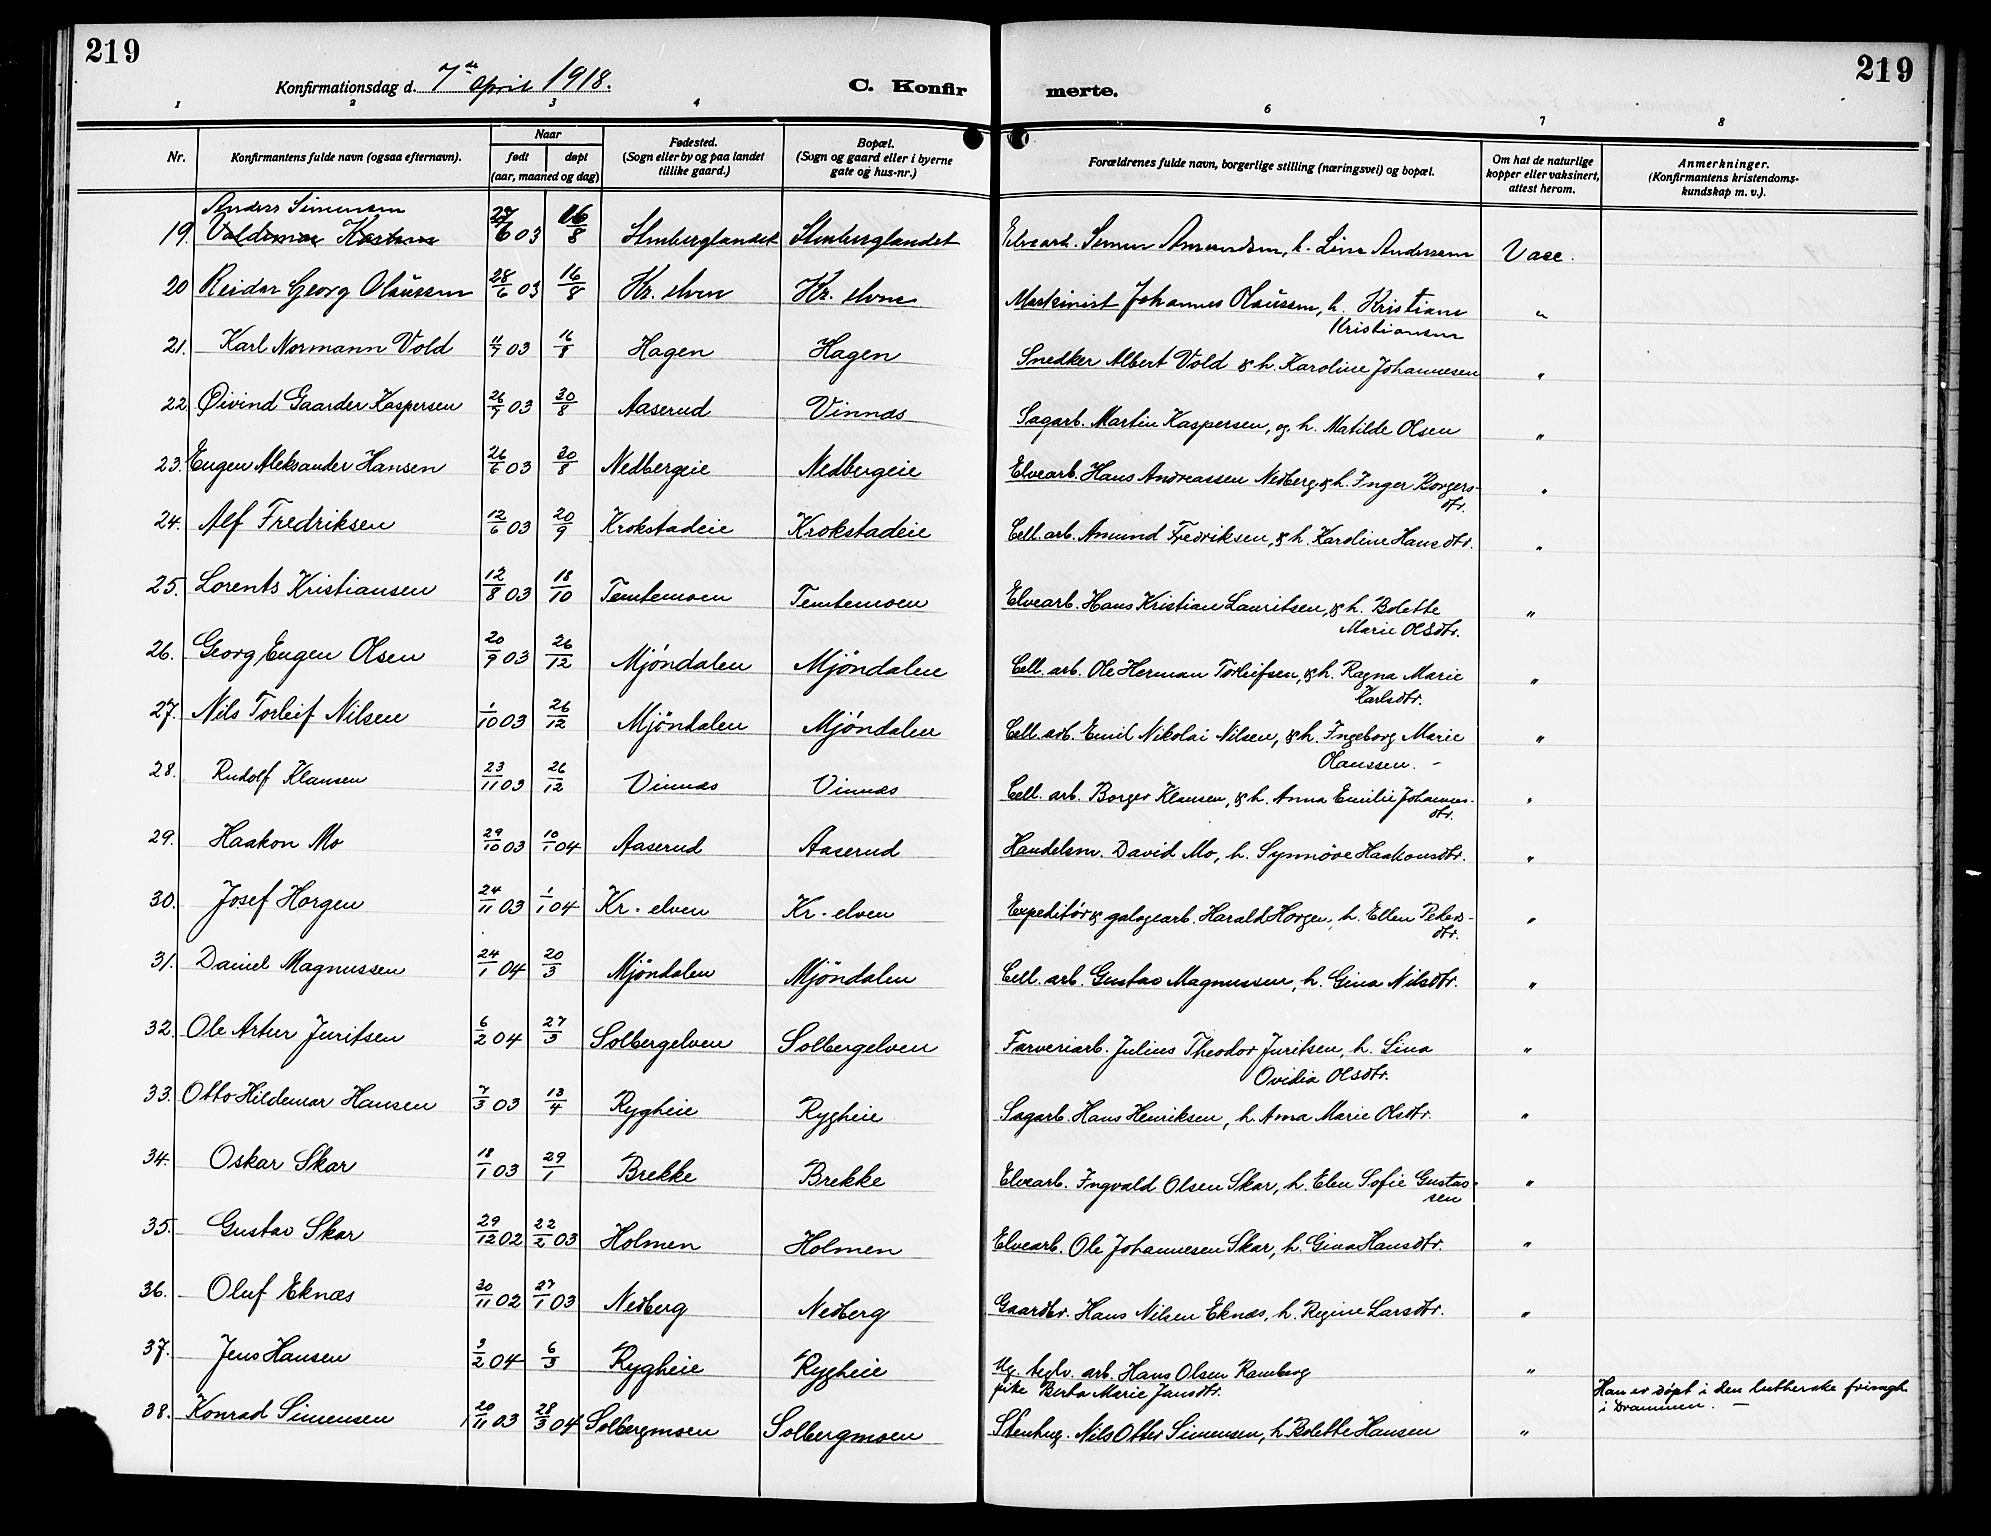 219
219
Konfirmationsdag d. 7de April 1918.
C. Konfir merte.
1 2 3 4 6 7 8
Nr.
Konfirmantens fulde navn (ogsaa efternavn).
Naar
født døpt
(aar, maaned og dag)
Fødested.
(Sogn eller by og paa landet
tillike gaard.)
Bopæl.
(Sogn og gaard eller i byerne
gate og hus-nr.)
Forældrenes fulde navn, borgerlige stilling (næringsvei) og bopæl.
Om hat de naturlige
kopper eller vaksinert,
attest herom.
Anmerkninger.
(Konfirmantens kristendoms-
kundskap m. v.).
Anders Simensen
19. 27/6 03 16/8 Stenberglandet Stenberglandet Elvearb. Simen Amundsen, h. Lina Andersen Vacc.
20 Reidar Georg Olaussen 28/6 03 16/8 Kr. elven Kr. elven Maskinist Johannes Olaussen, h. Kristiane
Kristiansen "
21. Karl Normann Vold 11/7 03 16/8 Hagen Hagen Snedker Albert Vold & h. Karoline Johannesen "
22 Øivind Gaarder Kaspersen 26/7 03 30/8 Aaserud Vinnæs Sagarb. Martin Kaspersen, og h. Matilde Olsen "
23. Eugen Aleksander Hansen 26/6 03 30/8 Nedbergeie Nedbergeie Elvearb. Hans Andreassen Nedberg & h. Inger Borgers-
dtr. "
24. Alf Fredriksen 12/6 03 20/9 Krokstadeie Krokstadeie Cell. arb. Amund Fredriksen, & h. Karoline Hansdtr. "
25. Lorents Kristiansen 12/8 03 18/10 Temtemoen Temtemoen Elvearb. Hans Kristian Lauritsen, & h. Bolette
Marie Olsdtr. "
26. Georg Eugen Olsen 20/9 03 26/12 Mjöndalen Mjöndalen Cell. arb. Ole Herman Torleifsen, & h. Ragna Marie
Karlsdtr. "
27. Nils Torleif Nilsen 1/10 03 26/12 Mjöndalen Mjöndalen Cell. arb. Emil Nikolai Nilsen, & h. Ingeborg Marie
Olaussen. - "
28. Rudolf Klausen 23/11 03 26/12 Vinnæs Vinnæs Cell. arb. Borger Klausen, & h. Anna Emilie Johannes-
dtr. "
29. Haakon Mo 29/10 03 10/1 04 Aaserud Aaserud Handelsm. David Mo, h. Synnøve Haakonsdtr. "
30. Josef Horgen 24/11 03 1/1 04 Kr. elven Kr. elven Expeditör & galogearb. Harald Horgen, h. Ellen Peders-
dtr. "
31. Daniel Magnussen 24/1 04 20/3 Mjöndalen Mjöndalen Cell. arb. Gustav Magnussen, h. Gina Nilsdtr. "
32. Ole Artur Juritsen 6/2 04 27/3 Solbergelven Solbergelven Farveriarb. Julius Theodor Juritsen, h. Lina
Ovidia Olsdtr. "
33. Otto Hildemar Hansen 7/3 03 13/4 Rygheie Rygheie Sagarb. Hans Henriksen, h. Anna Marie Olsdtr. "
34. Oskar Skar 18/1 03 29/1 Brekke Brekke Elvearb. Ingvald Olsen Skar, h. Elen Sofie Gustav-
sen "
35. Gustav Skar 29/12 02 22/2 03 Holmen Holmen Elvearb. Ole Johannesen Skar, h. Gina Hansdtr. "
36. Oluf Eknæs 30/11 02 27/1 03 Nedberg Nedberg Gaardbr. Hans Nilsen Eknæs, h. Regine Larsdtr. "
37. Jens Hansen 3/2 04 6/3 Rygheie Rygheie Ug. teglv. arb. Hans Olsen Ramberg
pike Berta Marie Jansdtr. "
38. Konrad Simensen 20/11 03 28/3 04 Solbergmoen Solbergmoen Stenhug. Nils Otter Simensen, h. Bolette Hansen " Han er döpt i den lutherske frimgh.
i Drammen. -